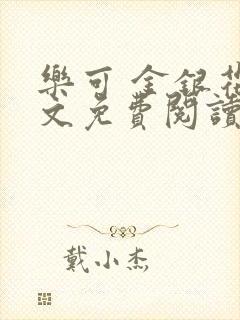 樂可 金銀花
文免費閱讀
戴小杰